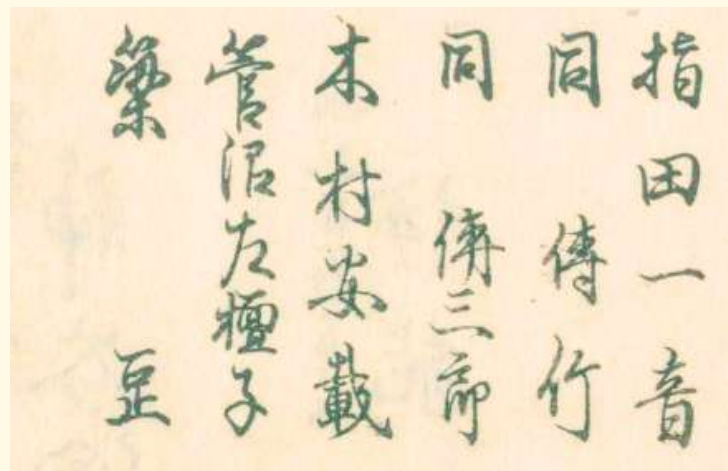 指田一音
同傳竹
同傳三郎
木村安載
菅沼左檀子
築豆